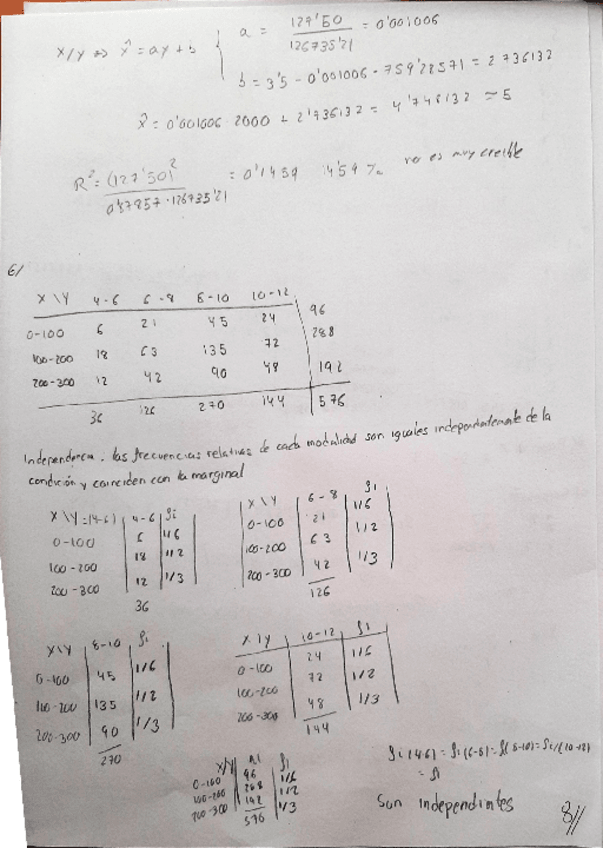 a = 127'50 / 126735'21 = 0'001006
x/y ⇒ x̂ = ay + b
b = 3'5 - 0'001006 · 759'28571 = 2 736132
x̂ = 0'001006 2000 + 2'736132 = 4'748132 ≈ 5
R² = (127'50)² / 0'87857 · 126735'21 = 0'1459 14'59 % no es muy creible
6/
X \ Y 4-6 6-8 8-10 10-12
0-100 6 21 45 24 96
100-200 18 63 135 72 288
200-300 12 42 90 48 192
36 126 270 144 576
Independencia. las frecuencias relativas de cada modalidad son iguales independientemente de la
condición y coinciden con la marginal
X \ Y=(4-6) 4-6 fi
0-100 6 1/6
100-200 18 1/2
200-300 12 1/3
36
X \ Y 6-8 fi
0-100 21 1/6
100-200 63 1/2
200-300 42 1/3
126
X \ Y 8-10 fi
0-100 45 1/6
100-200 135 1/2
200-300 90 1/3
270
X \ Y 10-12 fi
0-100 24 1/6
100-200 72 1/2
200-300 48 1/3
144
X/Y fi
0-100 96 1/6
100-200 288 1/2
200-300 192 1/3
576
fi (4-6) = fi (6-8) = f( 8-10) = fi/(10-12)
= fi
Son independientes
8//